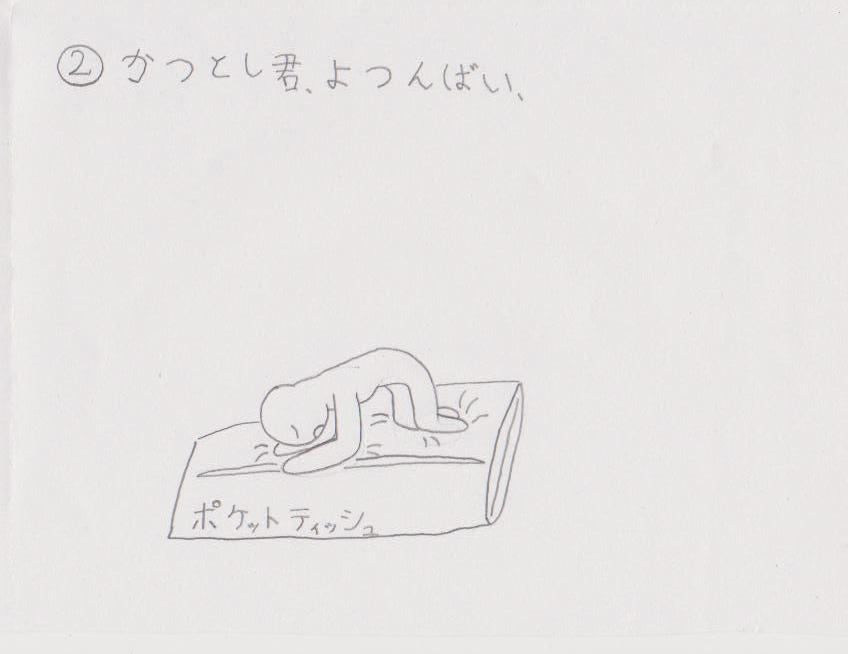 ② かつとし君、よつんばい、
ポケットティッシュ